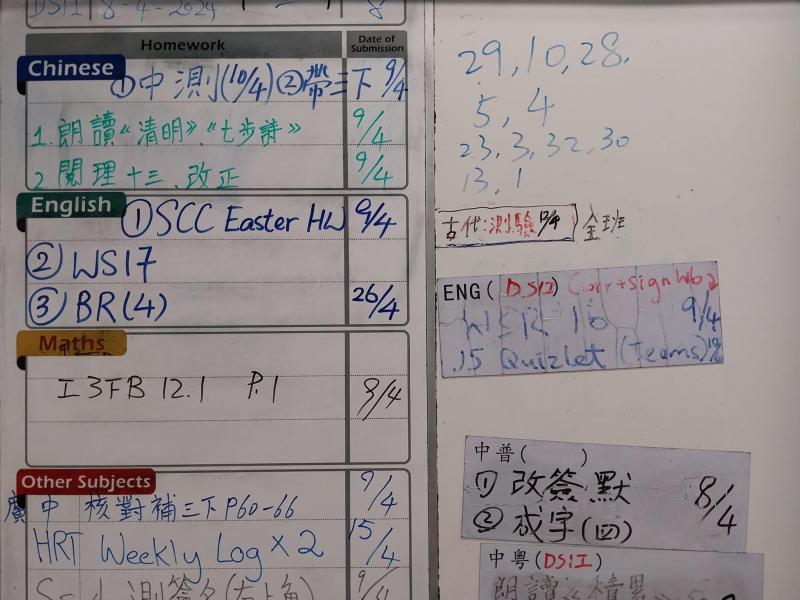 DSI 8-4-2024 8
Homework Date of Submission
Chinese ①中測(10/4)②帶三下 9/4
1. 朗讀《清明》、《七步詩》 9/4
2. 閱理十三、改正 9/4
English ①SCC Easter HW 9/4
② WS17
③ BR(4) 26/4
Maths
I 3FB 12.1 P.1 9/4
Other Subjects
廣中 核對補三下P60-66 9/4
HRT Weekly Log x 2 15/4
測簽名(右上角) 9/4
29, 10, 28,
5, 4
23, 3, 32, 30
13, 1
古代:測驗12/4 全班
ENG( DSI) Corr+Sign Wb2
16 9/4
15 Quizlet (Teams)
中普( )
① 改簽默 8/4
② 成字(四)
中粵(DSI)
朗讀《積累》